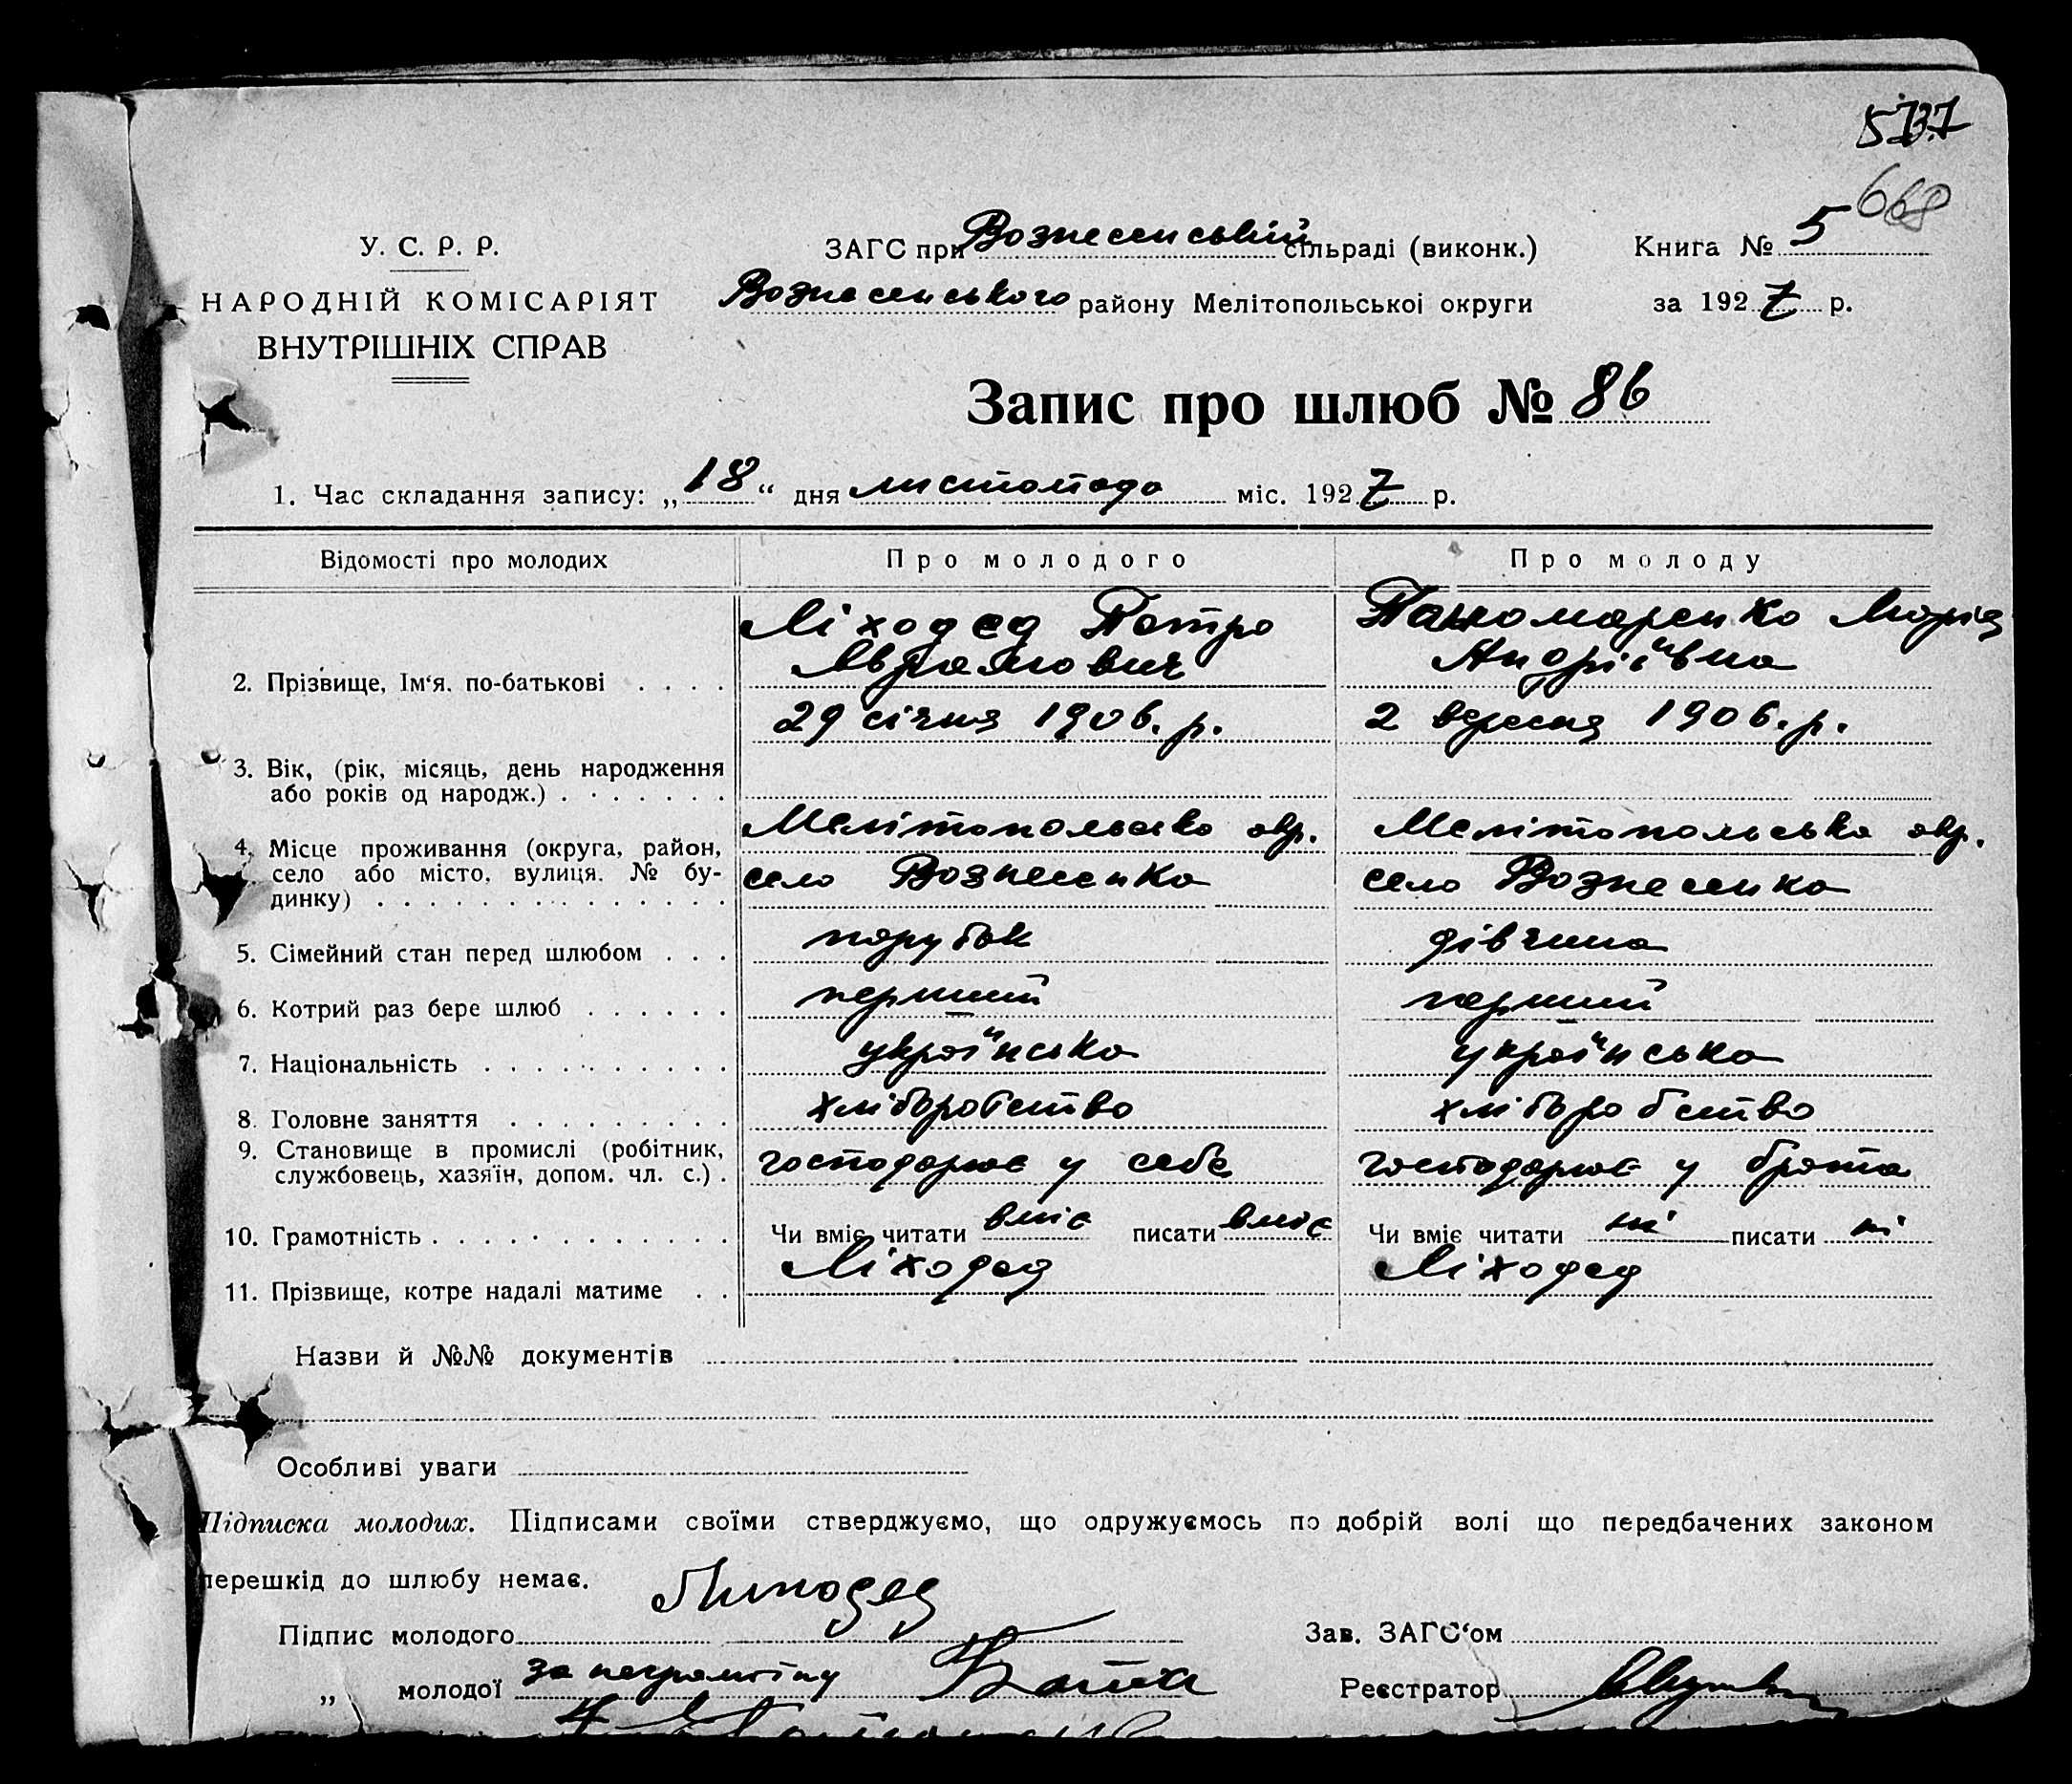 5
У. С. Р. Р.
НАРОДНІЙ КОМІСАРІЯТ
ВНУТРІШНІХ СПРАВ
ЗАГС при Вознесенській сільраді (виконк.)
Вознесенського району Мелітопольської округи
Книга № 5
за 1927 р.
Запис про шлюб № 86
1. Час складання запису: „18“ дня листопада міс. 1927 р.
Відомості про молодих
Про молодого
Про молоду
2. Прізвище, Ім‘я. по-батькові . . . .
Ліходєд Петро
Аврамович
Паномаренко Марія
Андріївна
3. Вік, (рік, місяць, день народження
або років од народж.) . . . . . . .
29 січня 1906. р.
2 вересня 1906. р.
4. Місце проживання (округа, район,
село або місто, вулиця. № бу-
динку) . . . . . . . . . . . . . .
Мелітопольсько окр.
село Вознесенка
Мелітопольська окр.
село Вознесенка
5. Сімейний стан перед шлюбом . . .
парубок
дівчина
6. Котрий раз бере шлюб . . . . . .
перший
перший
7. Національність . . . . . . . . . .
українська
українська
8. Головне заняття . . . . . . . . .
хліборобство
хліборобство
9. Становище в промислі (робітник,
службовець, хазяїн, допом. чл. с.) .
господарює у себе
господарює у брата
10. Грамотність . . . . . . . . . . . .
Чи вміє читати вміє писати вміє
Чи вміє читати ні писати ні
11. Прізвище, котре надалі матиме . .
Ліходед
Ліходед
Назви й №№ документів
Особливі уваги
Підписка молодих. Підписами своїми стверджуємо, що одружуємось по добрій волі що передбачених законом
перешкід до шлюбу немає.
Підпис молодого
„ молодої за неграмотну
Зав. ЗАГС‘ом
Реєстратор